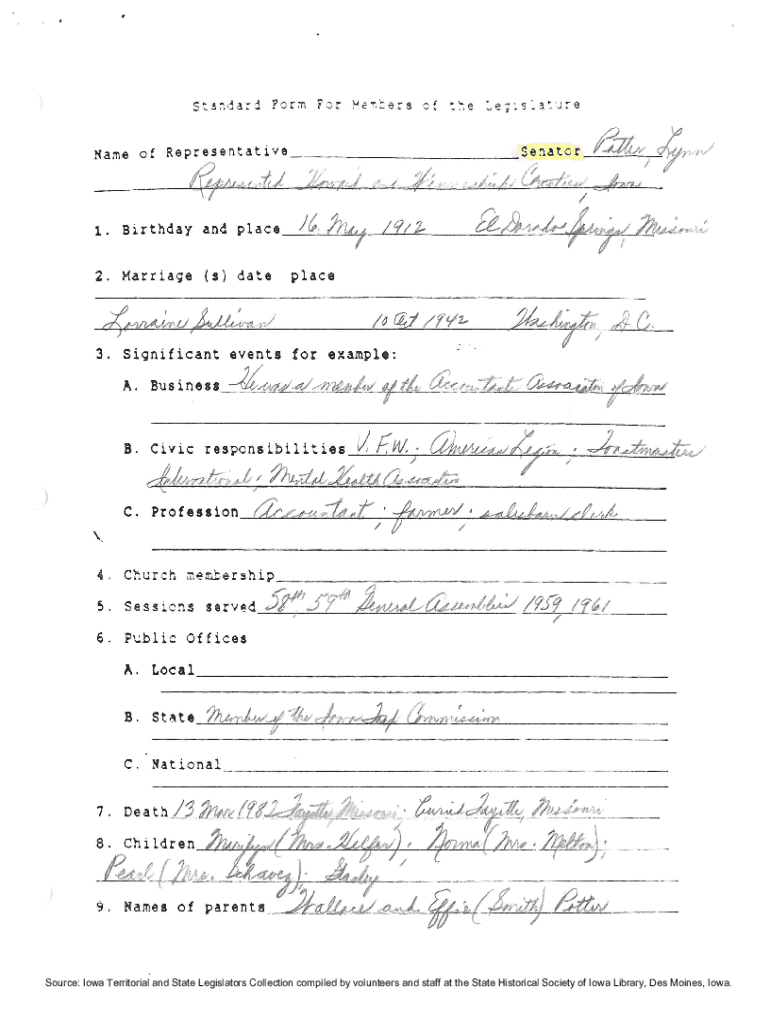 Standard Form For Members of the Legislature
Name of Representative Senator Potter, Lynn
Represented Howard and Winneshiek Counties, Iowa
1. Birthday and place 16 May 1912 El Dorado Springs, Missouri
2. Marriage (s) date place
Lorraine Sullivan 10 Oct 1942 Washington, D.C.
3. Significant events for example:
A. Business He was a member of the Accountants Association of Iowa
B. Civic responsibilities V.F.W.; American Legion; Toastmasters
International; Mental Health Association
C. Profession Accountant; farmer; salesbarn clerk
4. Church membership
5. Sessions served 58th, 59th General Assemblies 1959, 1961
6. Public Offices
A. Local
B. State Member of the Iowa Tax Commission
C. National
7. Death 13 Mar 1982 Fayette, Missouri; buried Fayette, Missouri
8. Children Marilyn (Mrs. Helfer); Norma (Mrs. Melton);
Pearl (Mrs. Schavez);
9. Names of parents Wallace and Effie (Smith) Potter
Source: Iowa Territorial and State Legislators Collection compiled by volunteers and staff at the State Historical Society of Iowa Library, Des Moines, Iowa.